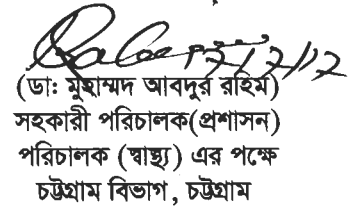 (ডা: মুহাম্মদ আবদুর রহিম)
সহকারী পরিচালক(প্রশাসন)
পরিচালক (স্বাস্থ্য) এর পক্ষে
চট্টগ্রাম বিভাগ, চট্টগ্রাম